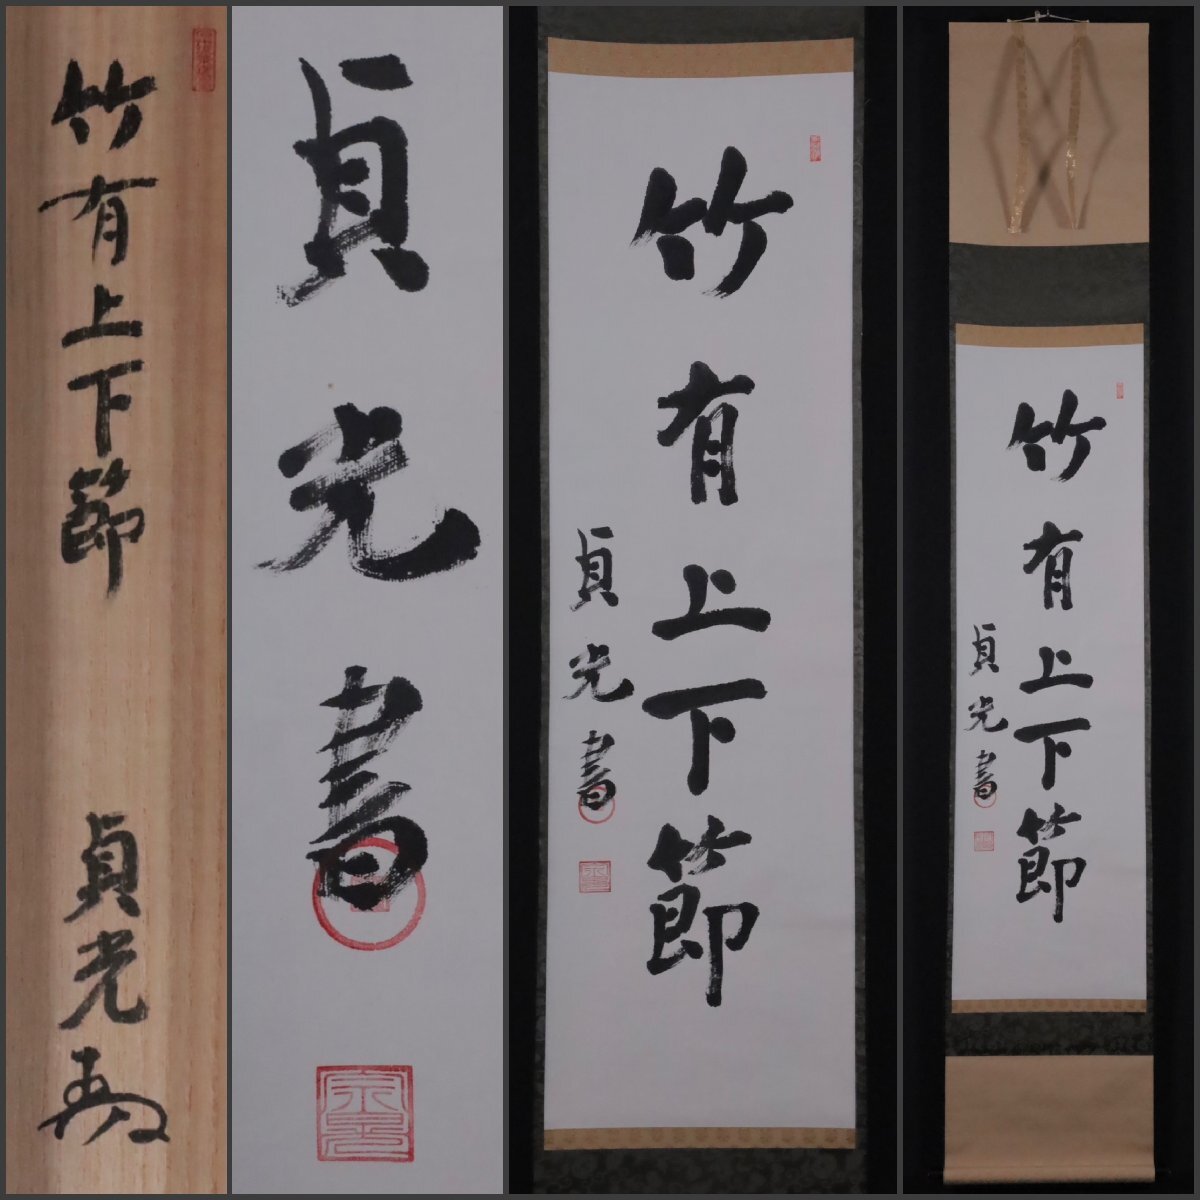 竹有上下節
貞光書
貞光書
竹有上下節
貞光書
竹有上下節
貞光書